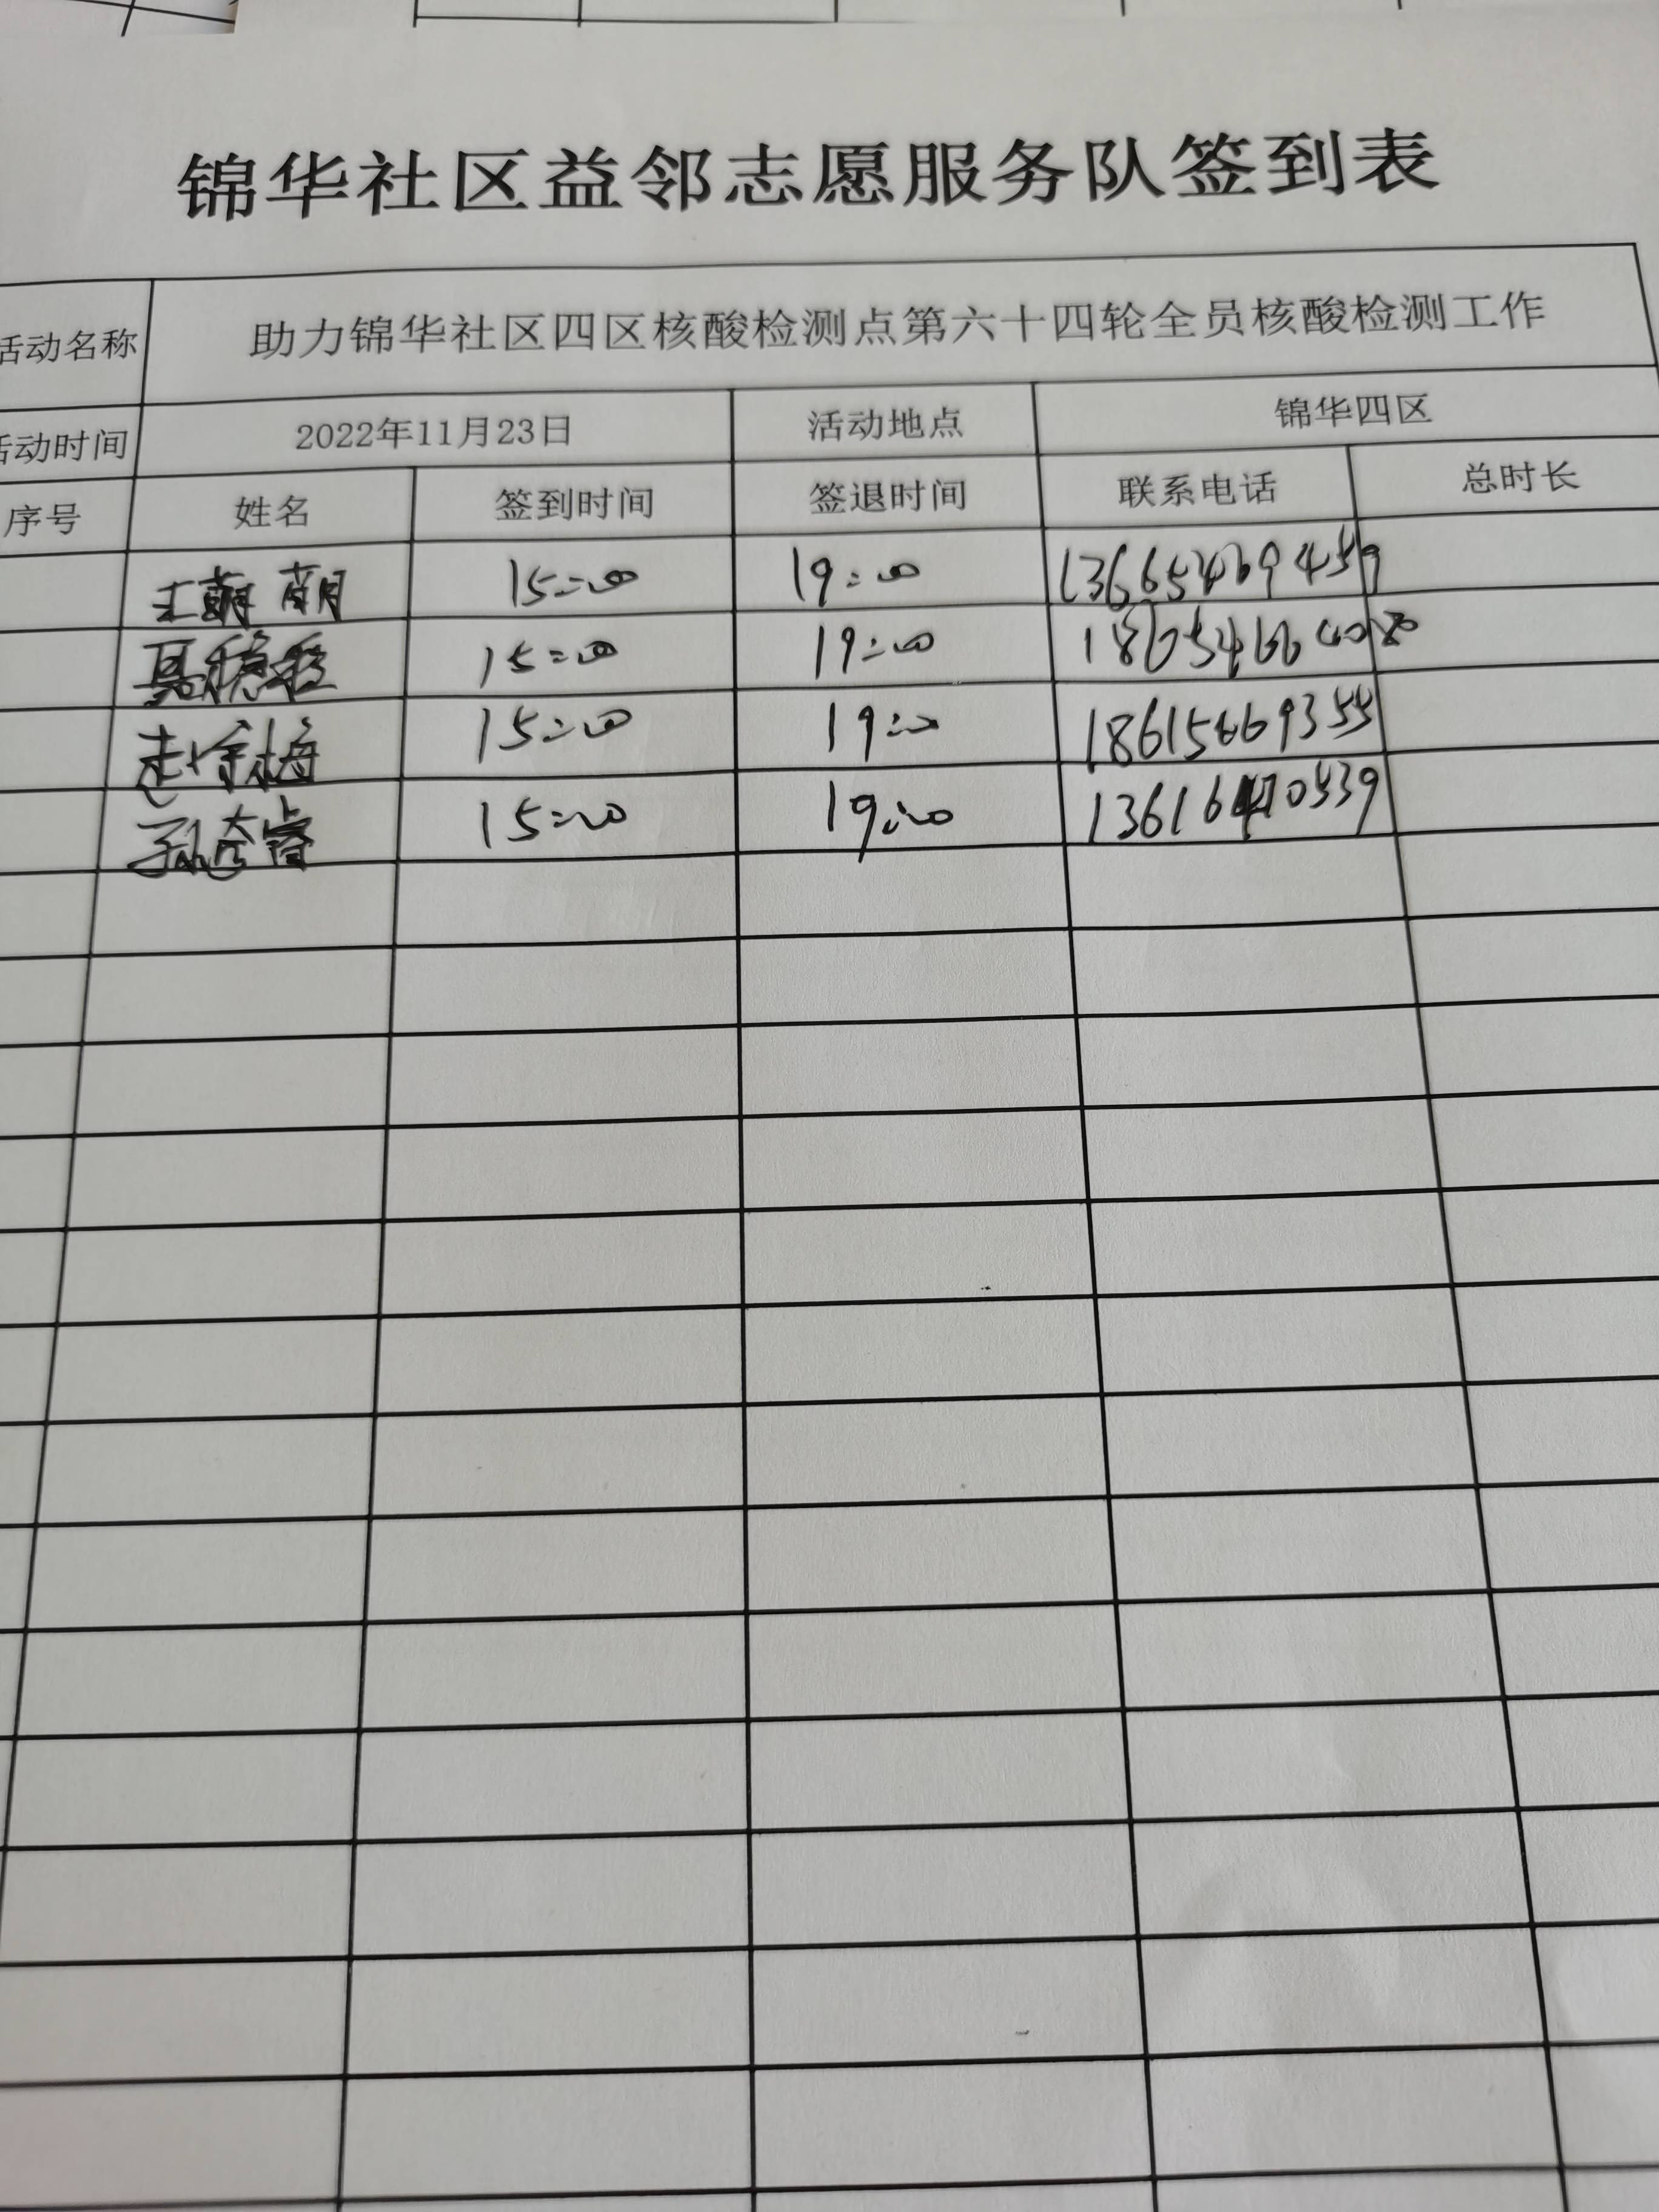 锦华社区益邻志愿服务队签到表
活动名称 助力锦华社区四区核酸检测点第六十四轮全员核酸检测工作
活动时间 2022年11月23日 活动地点 锦华四区
序号 姓名 签到时间 签退时间 联系电话 总时长
王萌萌 15:00 19:00 13665469459
15:00 19:00
15:00 19:00 18615669355
15:00 19:00